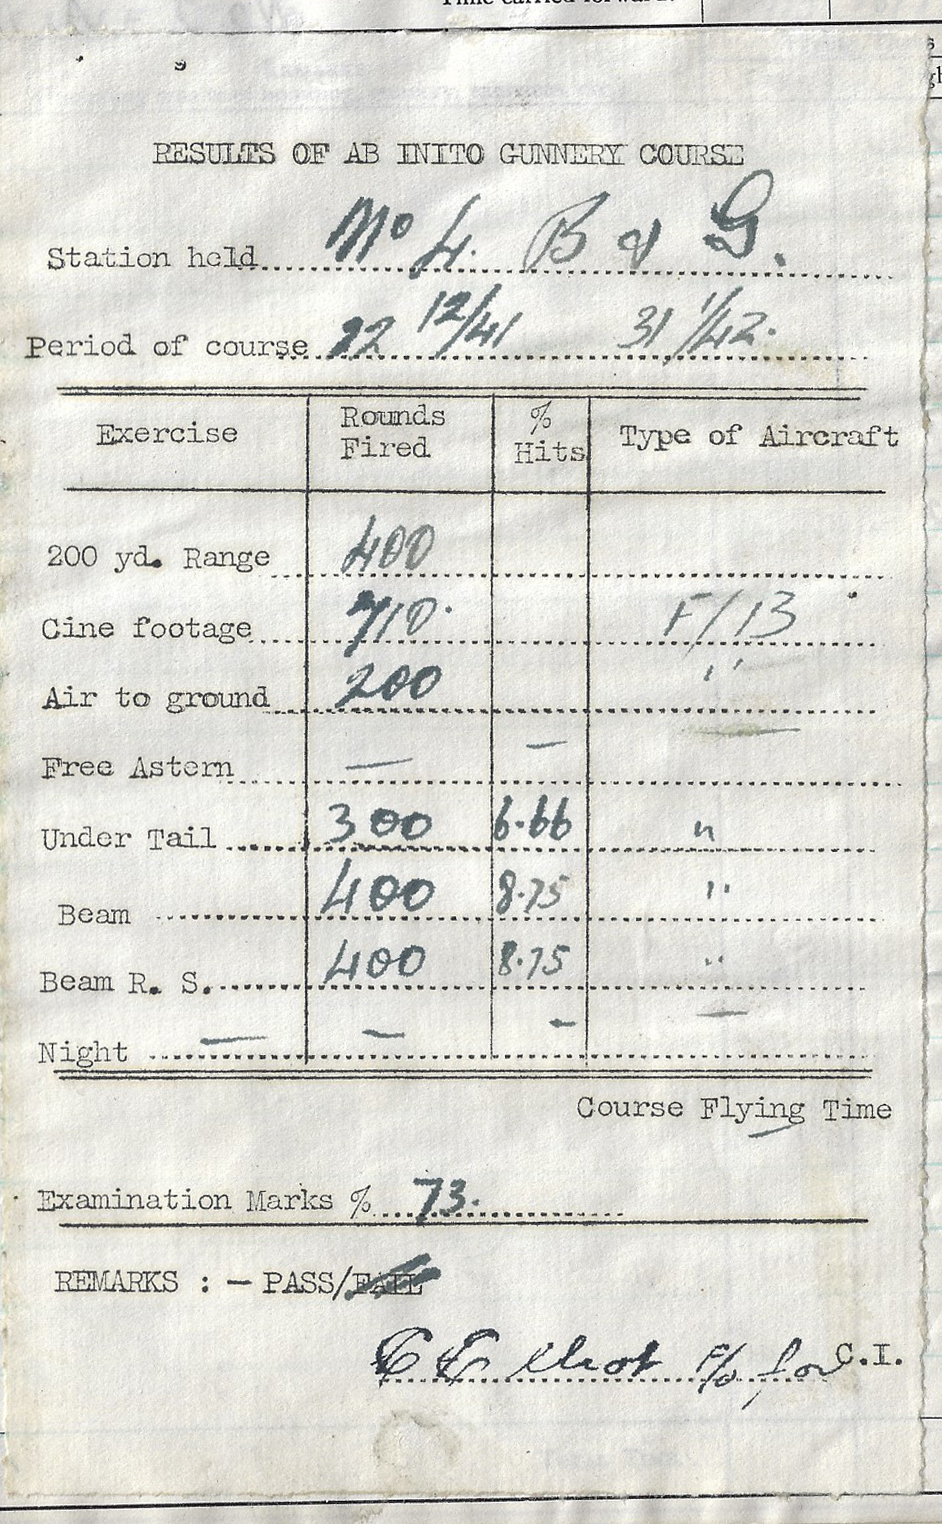 Time carried forward:
RESULTS OF AB INITO GUNNERY COURSE
Station held No 4. B & G.
Period of course 22 12/41 31 1/42.
Exercise Rounds Fired % Hits Type of Aircraft
200 yd. Range 400
Cine footage 710. F/13
Air to ground 200 "
Free Astern — —
Under Tail 300 6.66 "
Beam 400 8.75 "
Beam R. S. 400 8.75 "
Night — — — —
Course Flying Time
Examination Marks % 73.
REMARKS : - PASS/FAIL
F/O for C.I.